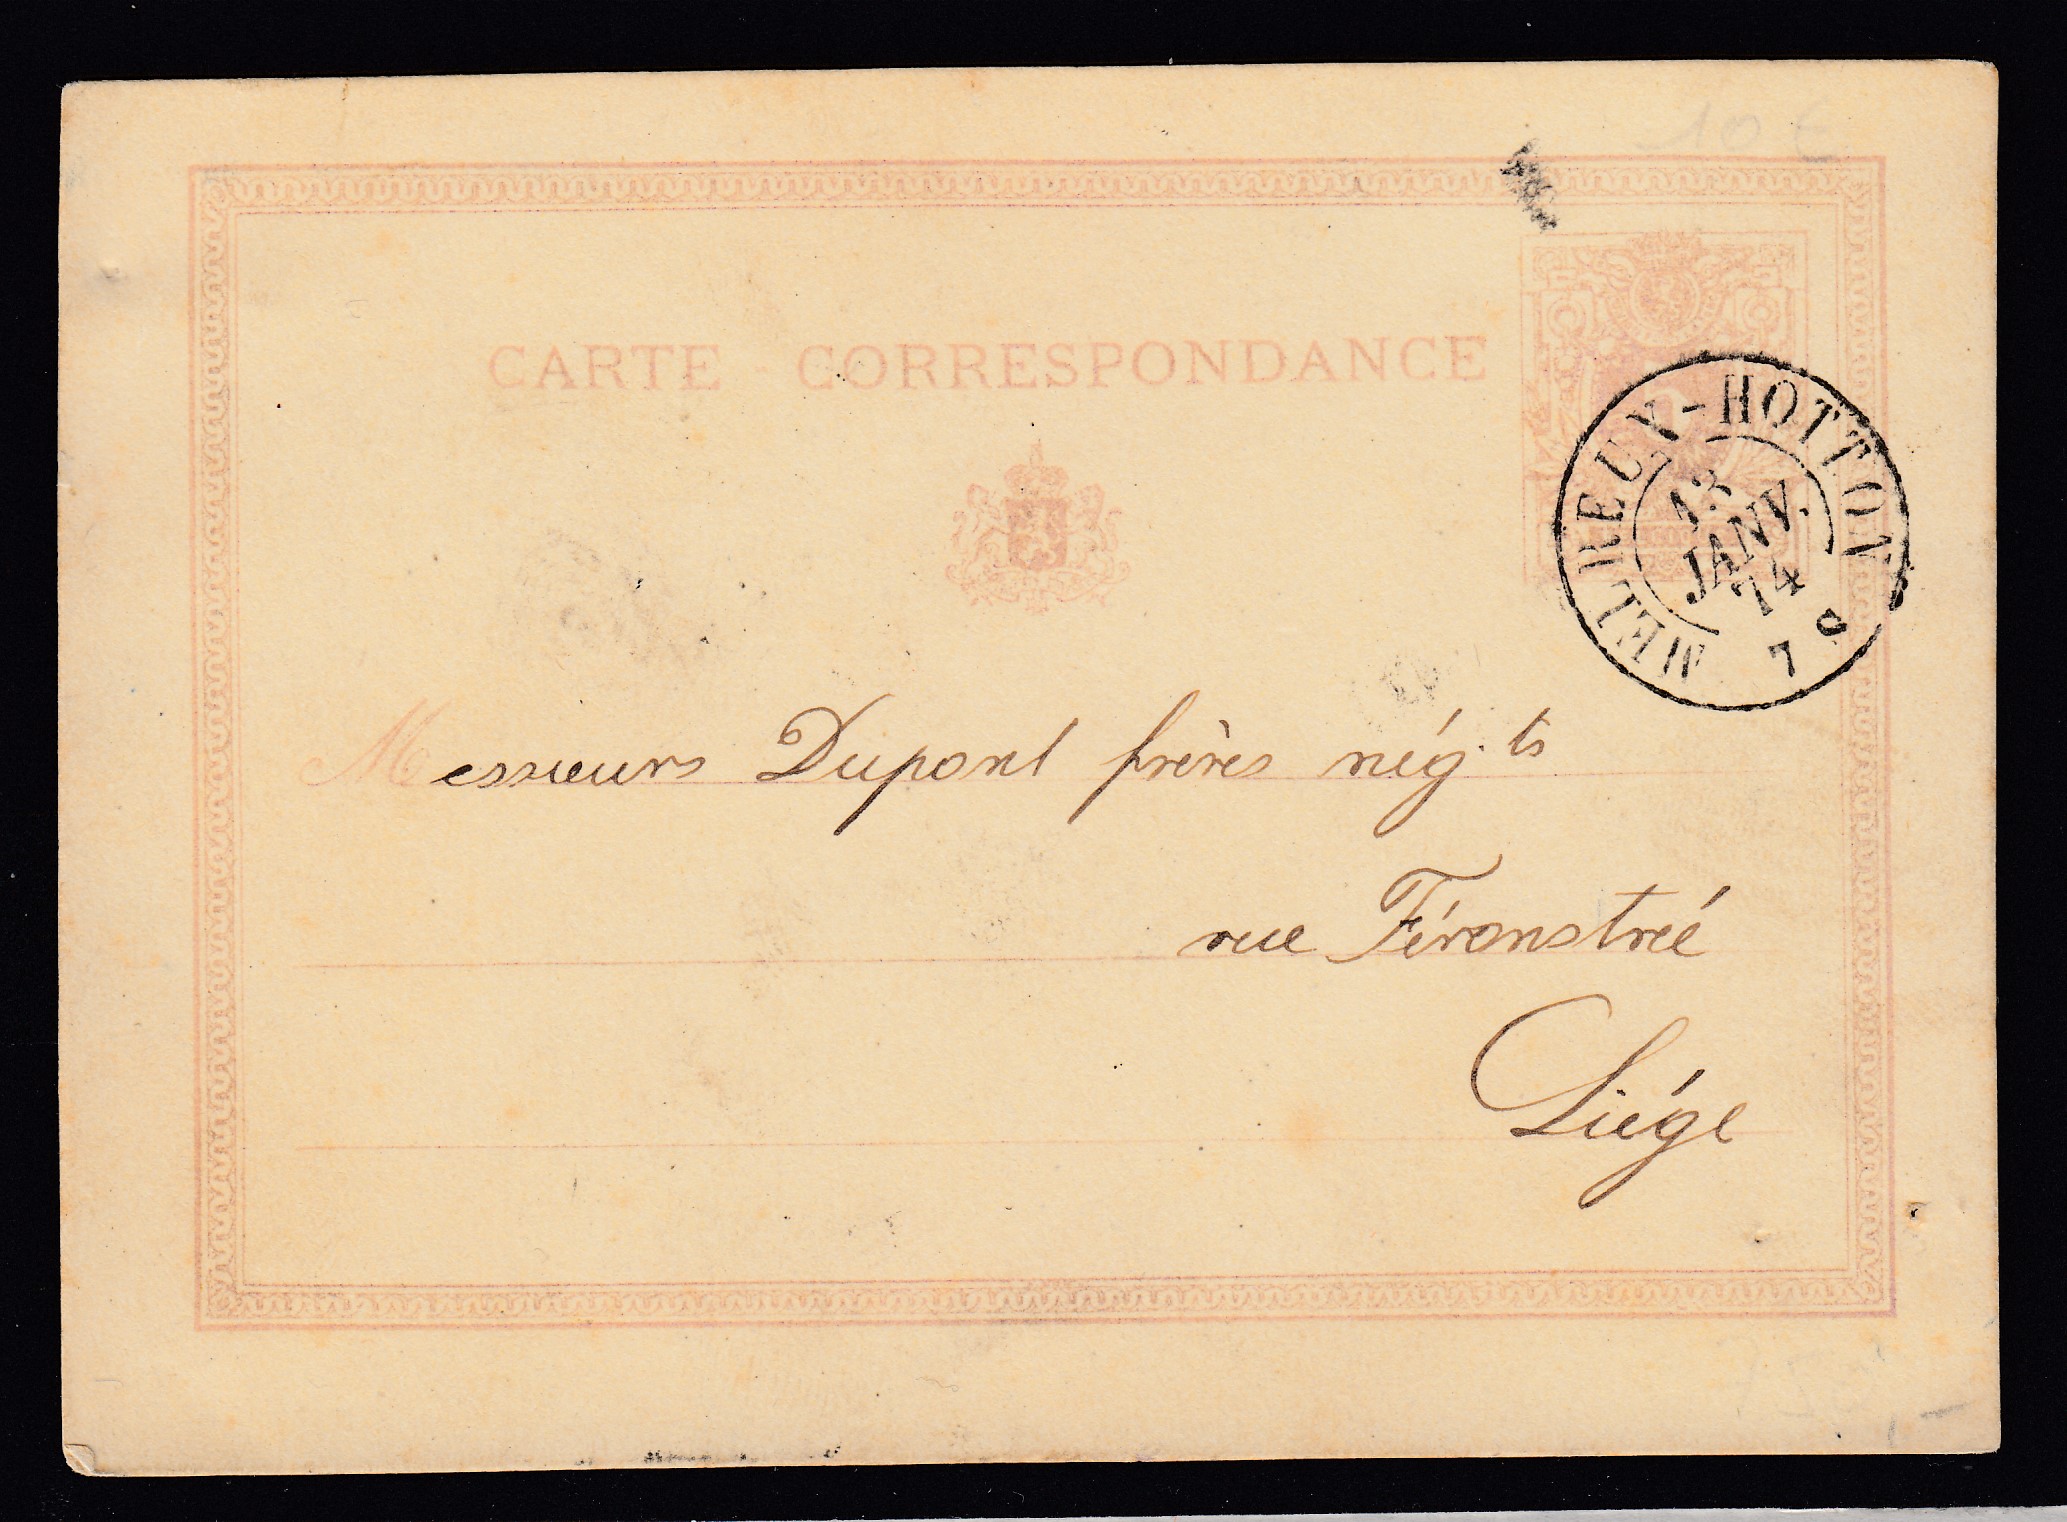 10 €
CARTE - CORRESPONDANCE
MELREUX-HOTTON
13
JANV.
74
7
Messieurs Dupont frères nég.ts
rue Féronstrée
Liége